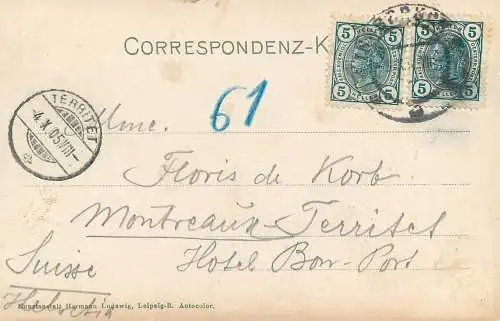 CORRESPONDENZ-K
5 5 5 5
5 5 5 5
61
TERRITET
-4.X.05.VIII-
Mme.
Floris de Korb
Montreaux-Territet
Suisse Hotel Bon-Port
Helvetia
Kunstanstalt Hermann Ludewig, Leipzig-R. Autocolor.